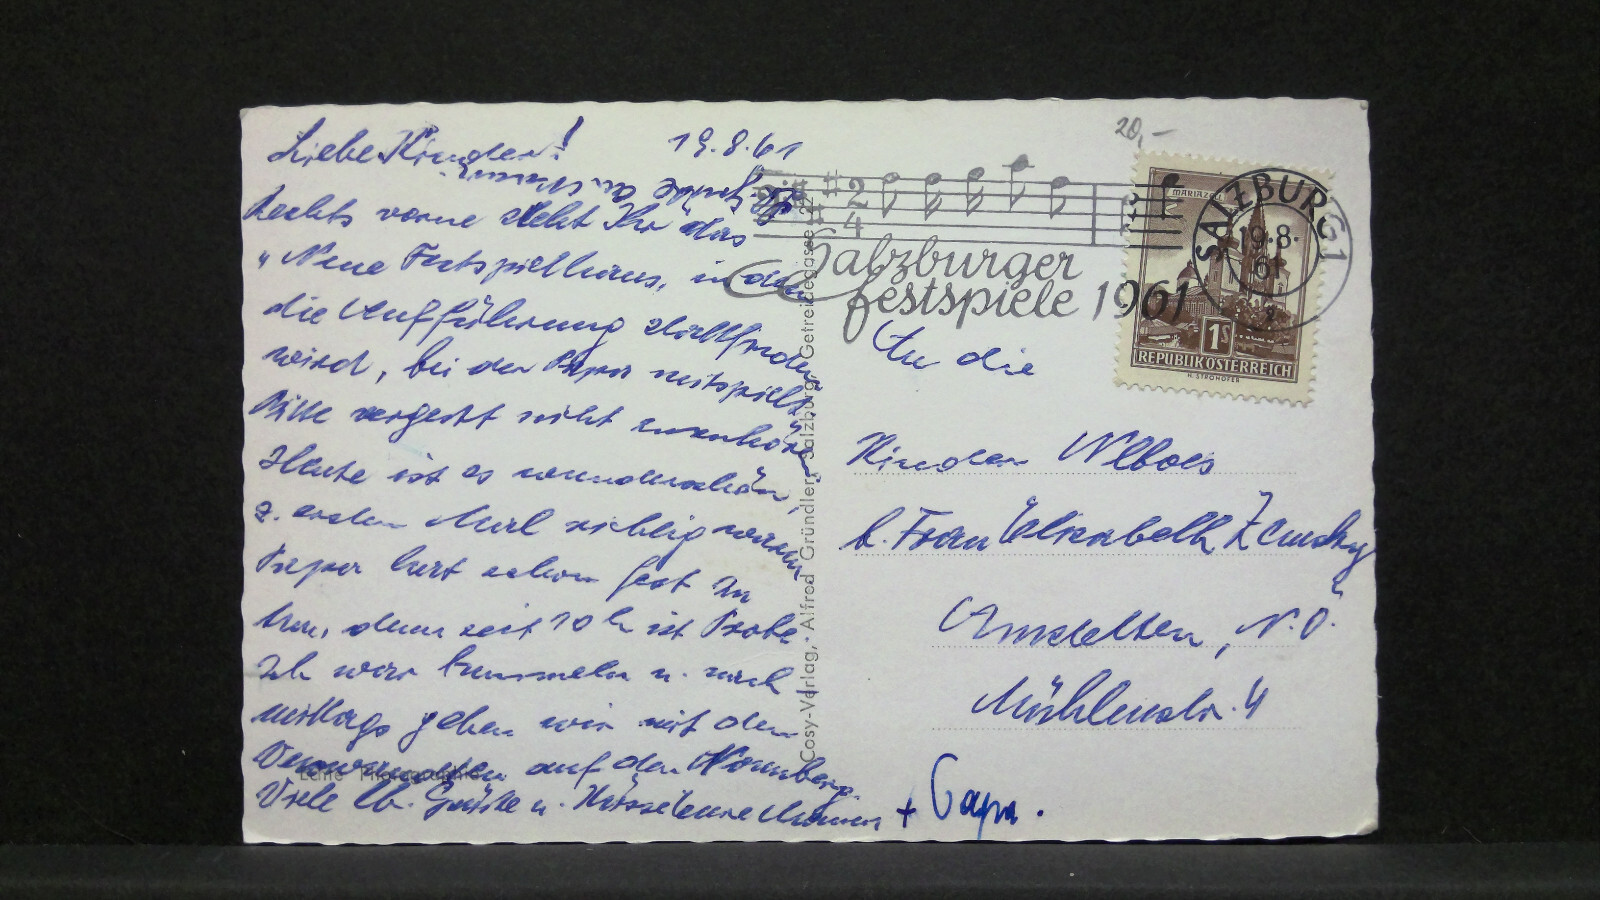 Liebe Kinder! 19.8.61
Rechts vorne steht Ihr das
"Neue Festspielhaus, in dem
die Aufführung stattfinden
wird, bei der Papa mitspielt.
Bitte vergesst nicht zuzuhören!
Heute ist es wunderschön,
z. ersten Mal richtig warm
Papa hat schon fest zu
tun, denn seit 10 h ist Probe
Ich war bummeln u. nach-
mittags gehen wir mit den
Verwandten auf den Nonnberg.
Viele lb. Grüße u. Küsse Eure Mama + Papa.
20,-
2
4
Salzburger
festspiele 1961
SALZBURG 1
19.8.
61
MARIAZELL
1S
REPUBLIK ÖSTERREICH
H. STROHOFER
An die
Kinder
b. Frau Elisabeth Zemsky
Amstetten, N.Ö.
Mühlenstr. 4
Cosy-Verlag, • Alfred Gründler, Salzburg, Getreidegasse 22